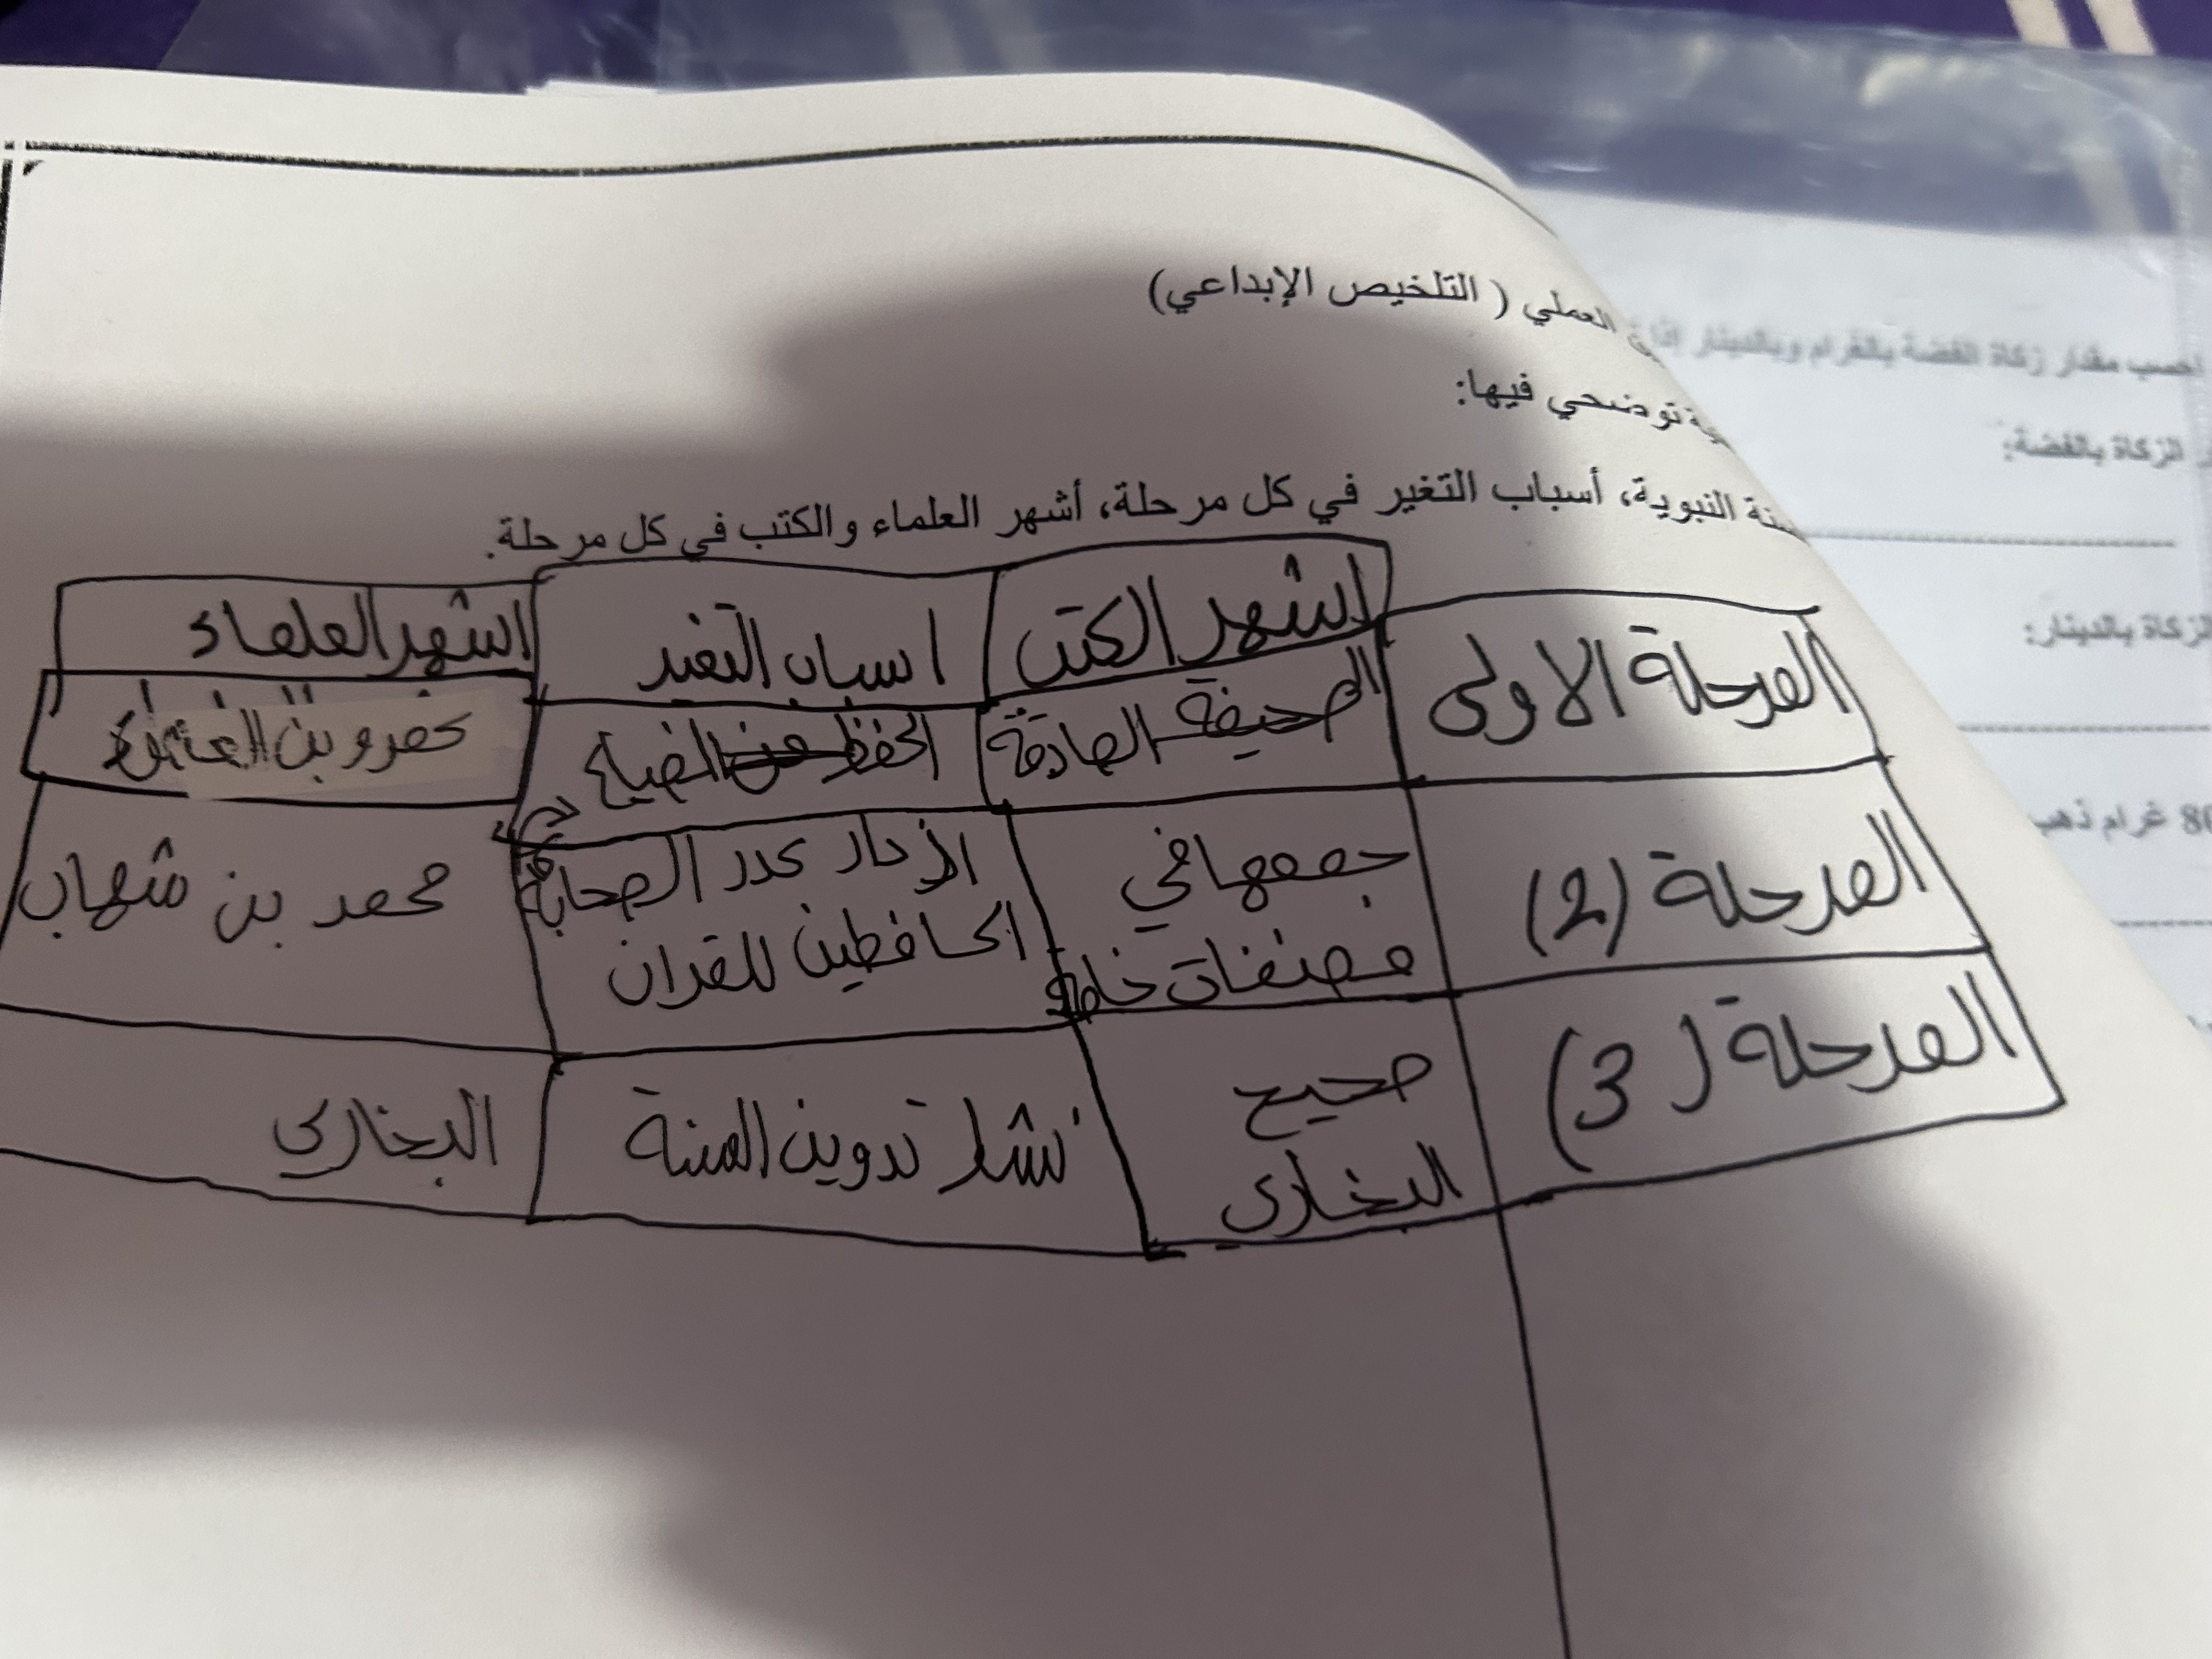 العملي ( التلخيص الإبداعي)
توضحي فيها:
النبوية، أسباب التغير في كل مرحلة، أشهر العلماء والكتب في كل مرحلة.
اشهر الكتب اسباب التغير اشهر العلماء
المرحلة الاولى الصحيفة الصادقة الحفظ من الضياع عمرو بن
المرحلة (2) جمعها في مصنفات خاصة ازدياد عدد الصحابة الحافظين للقران محمد بن شهاب
المرحلة (3) صحيح البخاري نشر تدوين السنة البخاري
احسب مقدار زكاة الفضة بالغرام وبالدينار إذا
الزكاة بالفضة:
الزكاة بالدينار:
غرام ذهب